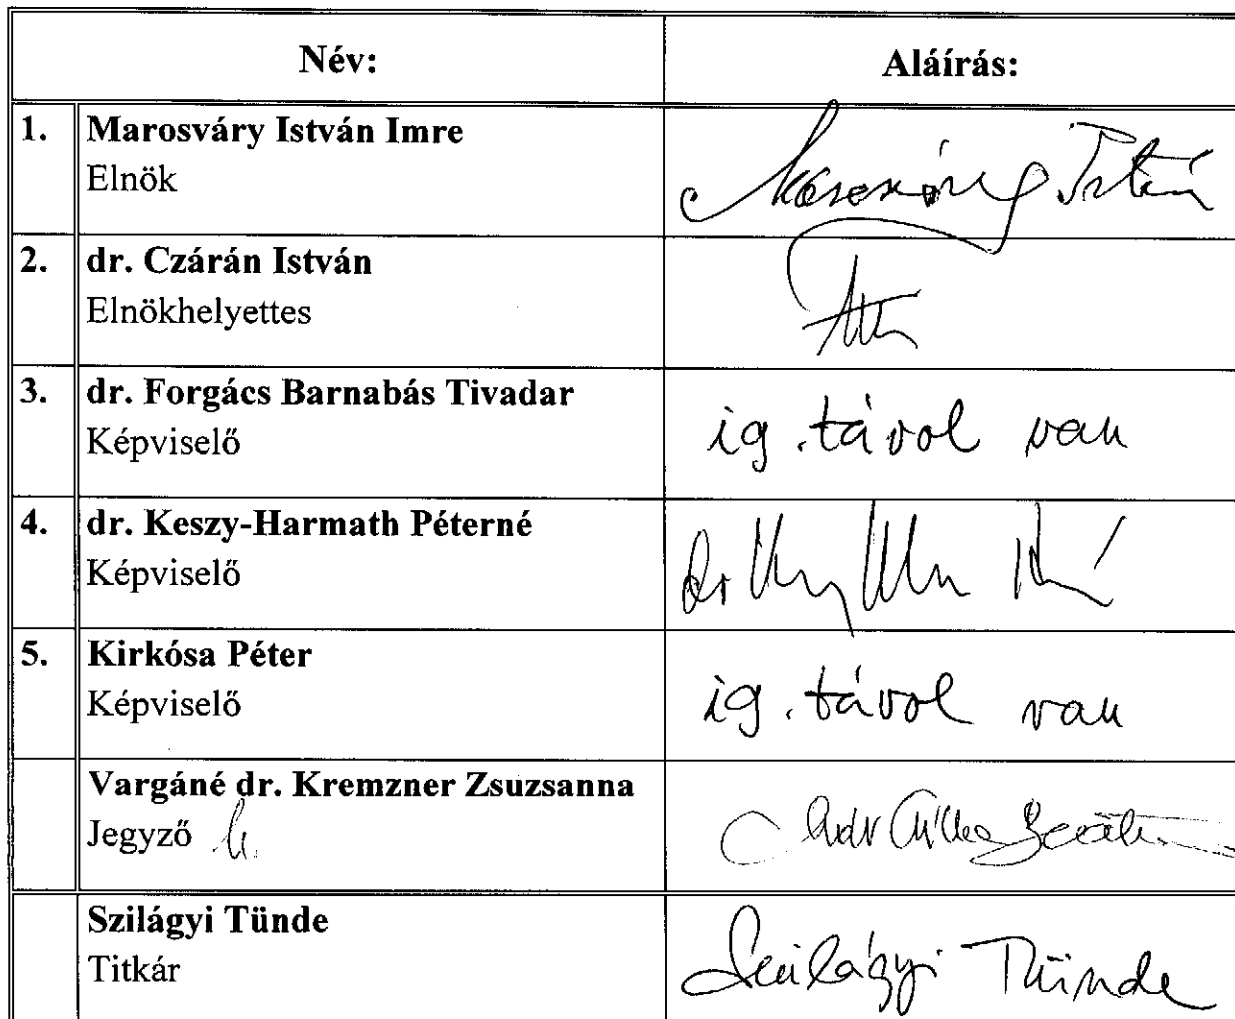 Név: Aláírás:
1. Marosváry István Imre
Elnök
Marosváry István
2. dr. Czárán István
Elnökhelyettes
3. dr. Forgács Barnabás Tivadar
Képviselő
ig. távol van
4. dr. Keszy-Harmath Péterné
Képviselő
dr
5. Kirkósa Péter
Képviselő
ig. távol van
Vargáné dr. Kremzner Zsuzsanna
Jegyző
Szilágyi Tünde
Titkár
Szilágyi Tünde